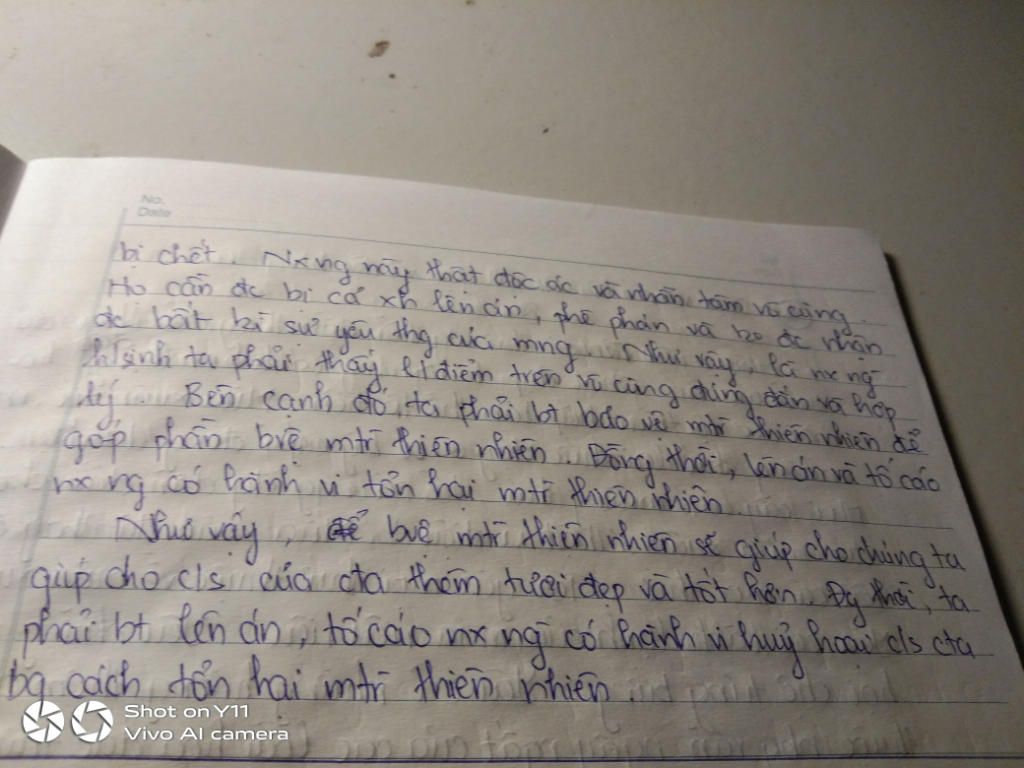 No.
Date
bị chết. Nxng này thật độc ác và nhẫn tâm vô cùng.
Họ cần đc bị cả xh lên án, phê phán và ko đc nhận
đc bất kì sự yêu thg của mng. Như vậy, là nx ng
h/sinh ta phải thấy l/điểm trên vô cùng đúng đắn và hợp
lý. Bên cạnh đó, ta phải bt bảo vệ mtr thiên nhiên để
góp phần bvệ mtr thiên nhiên. Đồng thời, lên án và tố cáo
nx ng có hành vi tổn hại mtr thiên nhiên.
Như vậy, bvệ mtr thiên nhiên sẽ giúp cho chúng ta
giúp cho c/s của cta thêm tươi đẹp và tốt hơn. Đg thời, ta
phải bt lên án, tố cáo nx ng có hành vi huỷ hoại c/s cta
bg cách tổn hại mtr thiên nhiên.
Shot on Y11
Vivo AI camera